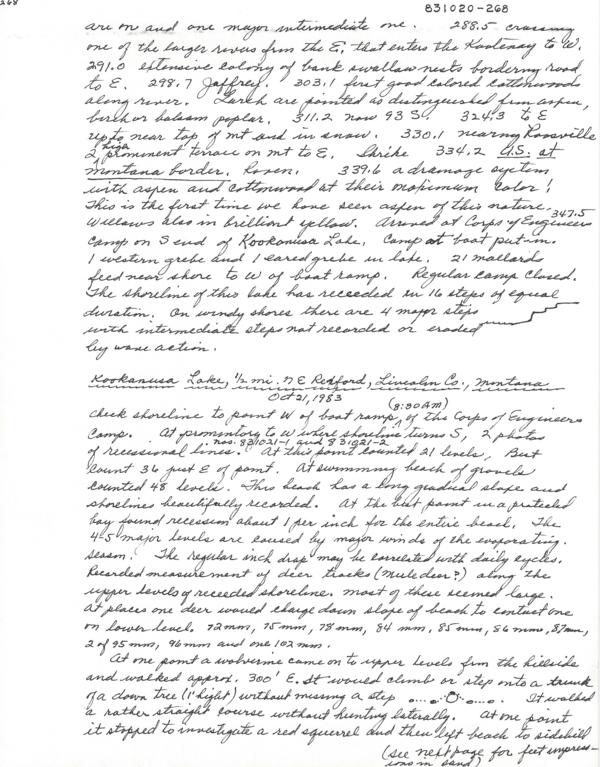 268
831020-268
are on and one major intermediate one. 288.5 crossing
one of the larger rivers from the E. that enters the Kootenay to W.
291.0 extensive colony of bank swallow nests bordering road
to E. 298.7 Jaffrey. 303.1 first good colored cottonwoods
along river. Larch are pointed as distinguished from aspen,
birch or balsam poplar. 311.2 now 93 S. 324.3 to E
up to near top of mt and in snow. 330.1 nearing Roosville
2 high prominent terrace on mt to E. Shrike 334.2 U.S. at
Montana border. Raven. 339.6 a drainage system
with aspen and cottonwood at their maximum color!
This is the first time we have seen aspen of this nature.
Willows also in brilliant yellow. Arrived at Corps of Engineers 347.5
camp on S end of Kookanusa Lake. Camp at boat put-in.
1 western grebe and 1 eared grebe in lake. 21 mallards
feed near shore to W of boat ramp. Regular camp closed.
The shoreline of this lake has receeded in 16 steps of equal
duration. On windy shores there are 4 major steps
with intermediate steps not recorded or eroded
by wave action.
Kookanusa Lake, 1/2 mi. N E Rexford, Lincoln Co., Montana
Oct 21, 1983
(8:30 AM)
check shoreline to point W of boat ramp, of the Corps of Engineers
Camp. At promintory to W where shoreline turns S, 2 photos
nos. 831021-1 and 831021-2
of recessional lines. At this point counted 21 levels, But
count 36 just E of point. At swimming beach of gravels
counted 48 levels. This beach has a long gradual slope and
shorelines beautifully recorded. At the last point in a protected
bay found recession about 1 per inch for the entire beach. The
4-5 major levels are caused by major winds of the evaporating
season. The regular inch drop may be correlated with daily cycles.
Recorded measurement of deer tracks (Mule deer?) along the
upper levels of receeded shoreline. Most of these seemed large.
At places one deer would charge down slope of beach to contact one
on lower level. 72mm, 75mm, 78mm, 84 mm, 85mm, 86 mm, 87mm,
2 of 95mm, 96mm and one 102mm.
At one point a wolverine came on to upper levels from the hillside
and walked approx. 300' E. It would climb or step onto a trunk
of a down tree (1' hight) without missing a step. It walked
a rather straight course without hunting laterally. At one point
it stopped to investigate a red squirrel and then left beach to sidehill
(see next page for feet impress-
ions in sand)